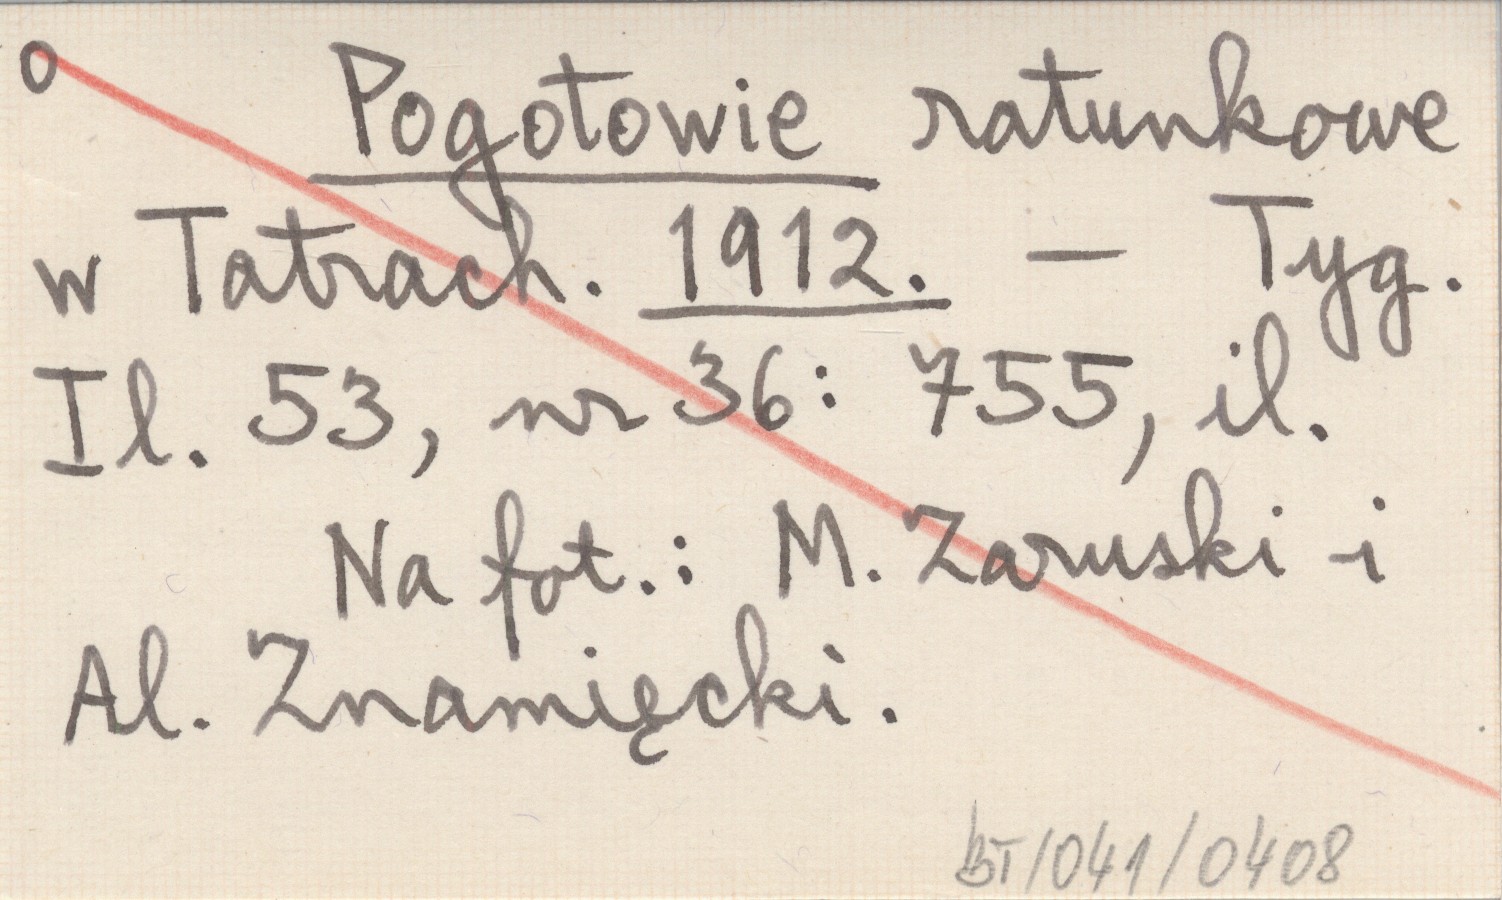 o Pogotowie ratunkowe
w Tatrach. 1912. — Tyg.
Il. 53, nr 36: 755, il.
Na fot.: M. Zaruski i
Al. Znamięcki.
BT/041/0408